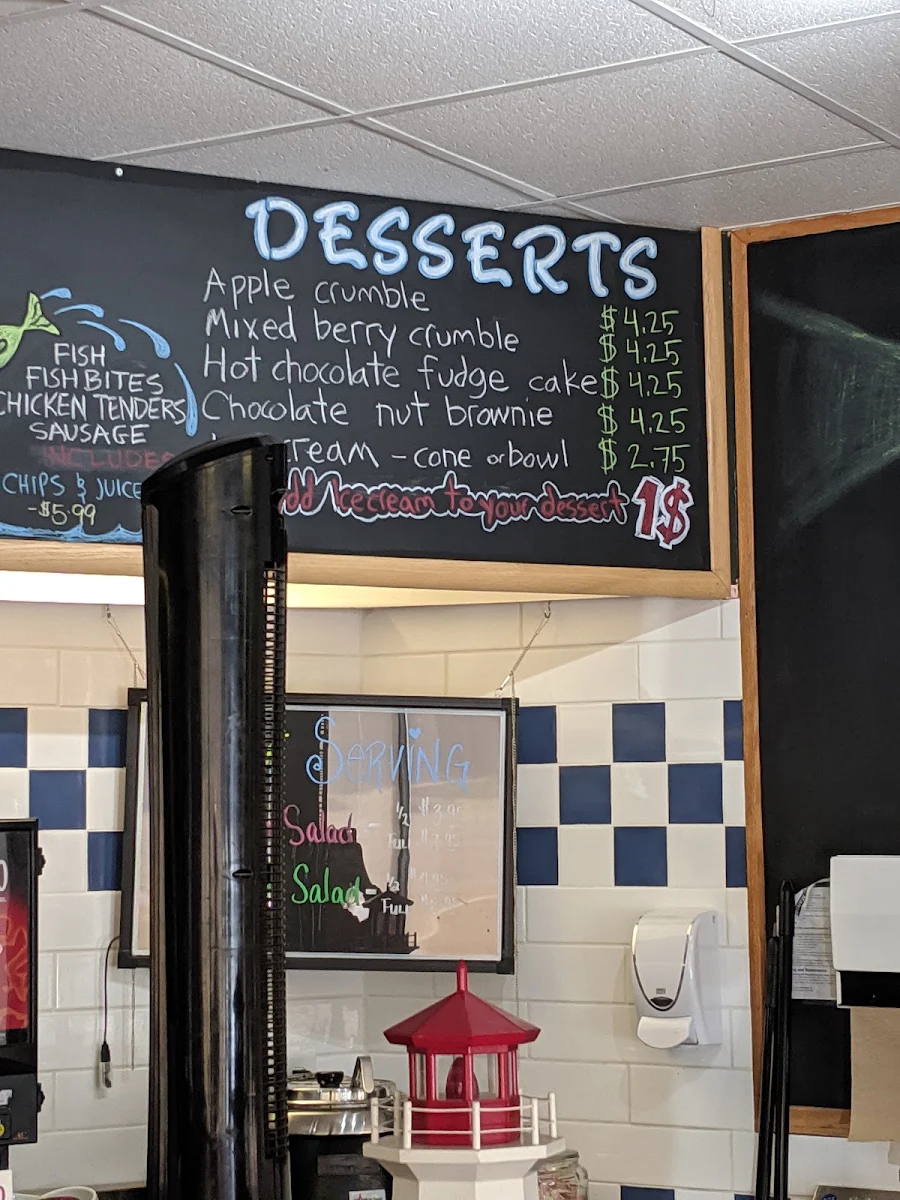 DESSERTS
Apple crumble $4.25
Mixed berry crumble $4.25
Hot chocolate fudge cake $4.25
Chocolate nut brownie $4.25
cream - cone or bowl $2.75
dd Icecream to your dessert 1$
FISH
FISH BITES
CHICKEN TENDERS
SAUSAGE
INCLUDES
CHIPS & JUICE
-$5.99
SERVING
Salad 1/2
Full
Salad - 1/2
Full